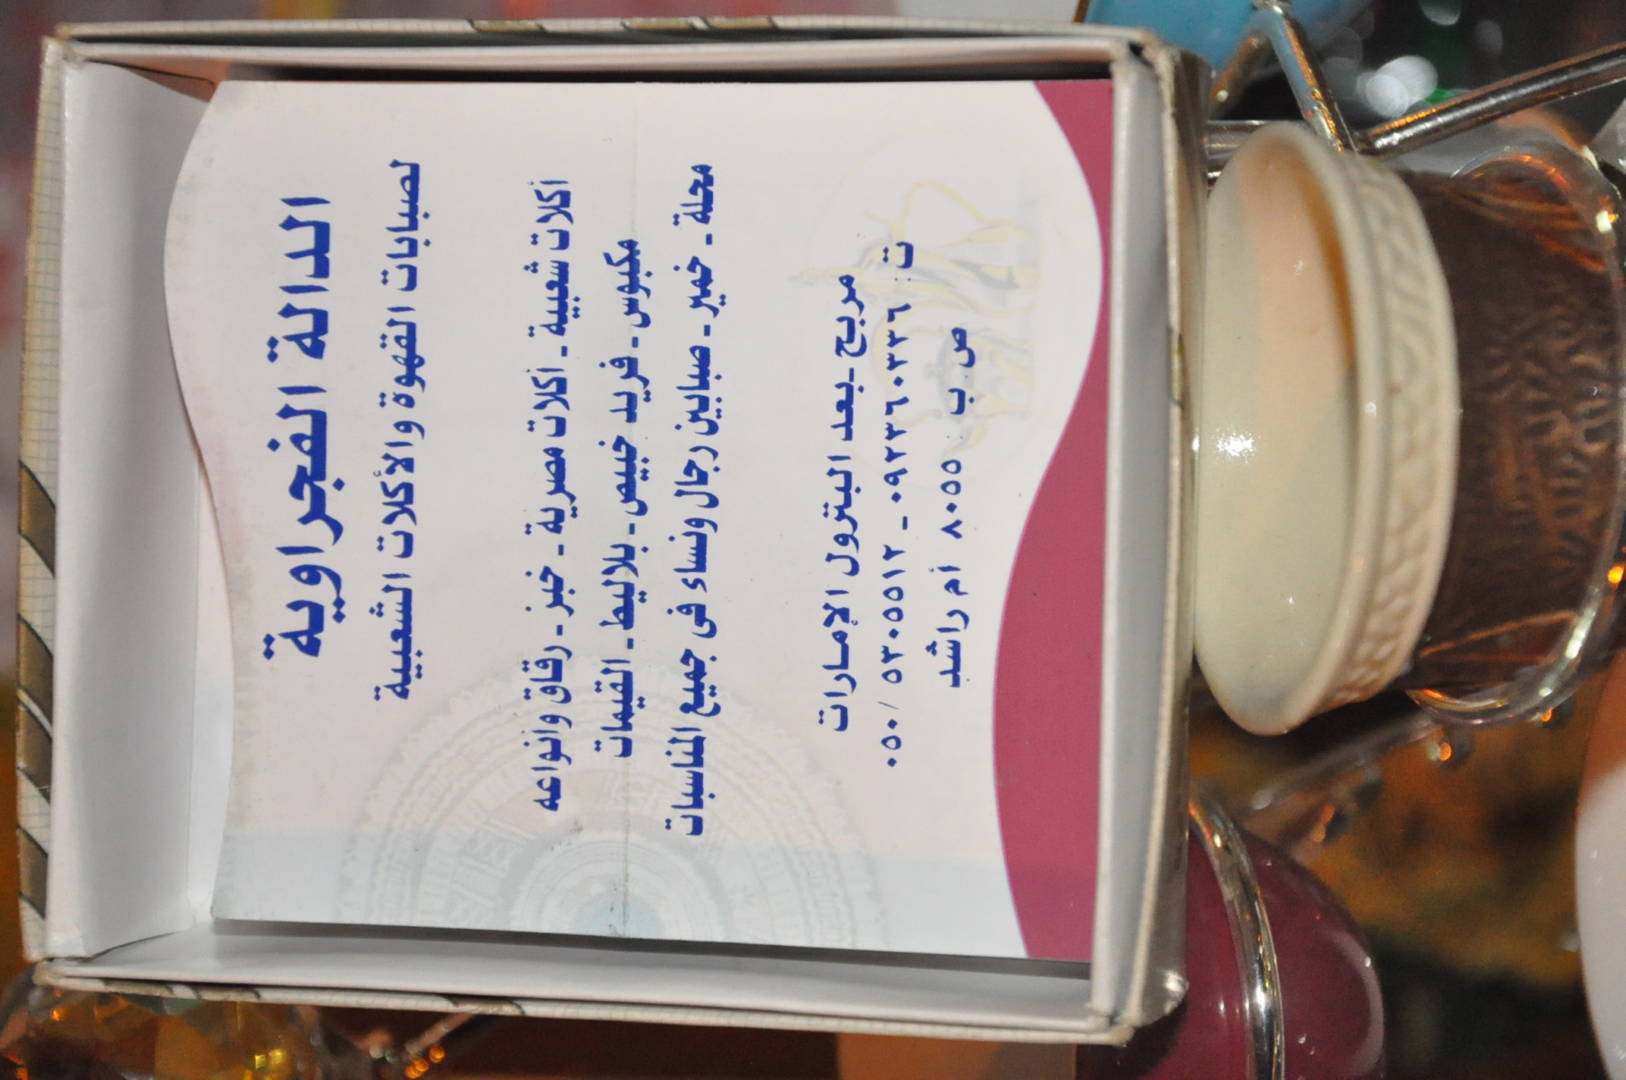 الدالة الفجراوية
لصبابات القهوة والأكلات الشعبية
اكلات شعبية ـ اكلات مصرية ـ خبز ـ رقاق وانواعه
مكبوس ـ فريد خبيص ـ بلاليط ـ القيمات
محلة ـ خمير ـ صبابين رجال ونساء في جميع المناسبات
مربح ـ بعد البترول الإمارات
ت : ٠٩٢٣٦٠٣٣٦ ـ ٠٥٠/٥٣٠٥٥١٢
ص ب ٨٠٥٥ أم راشد